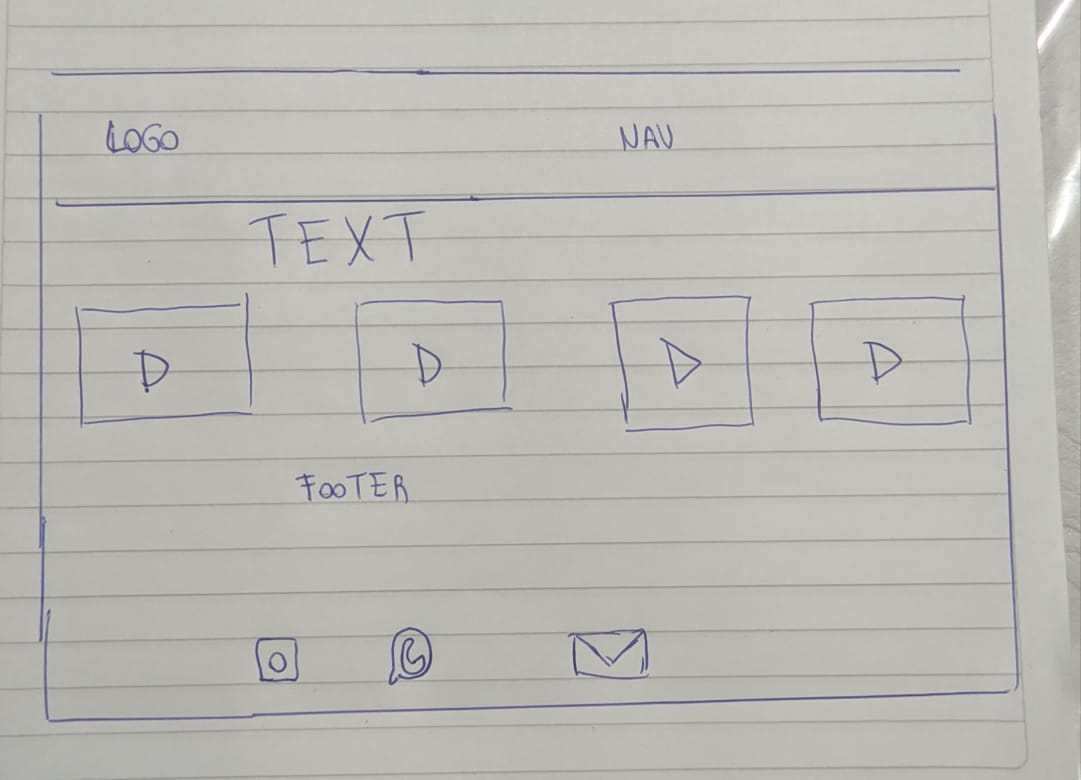 LOGO NAV
TEXT
FOOTER